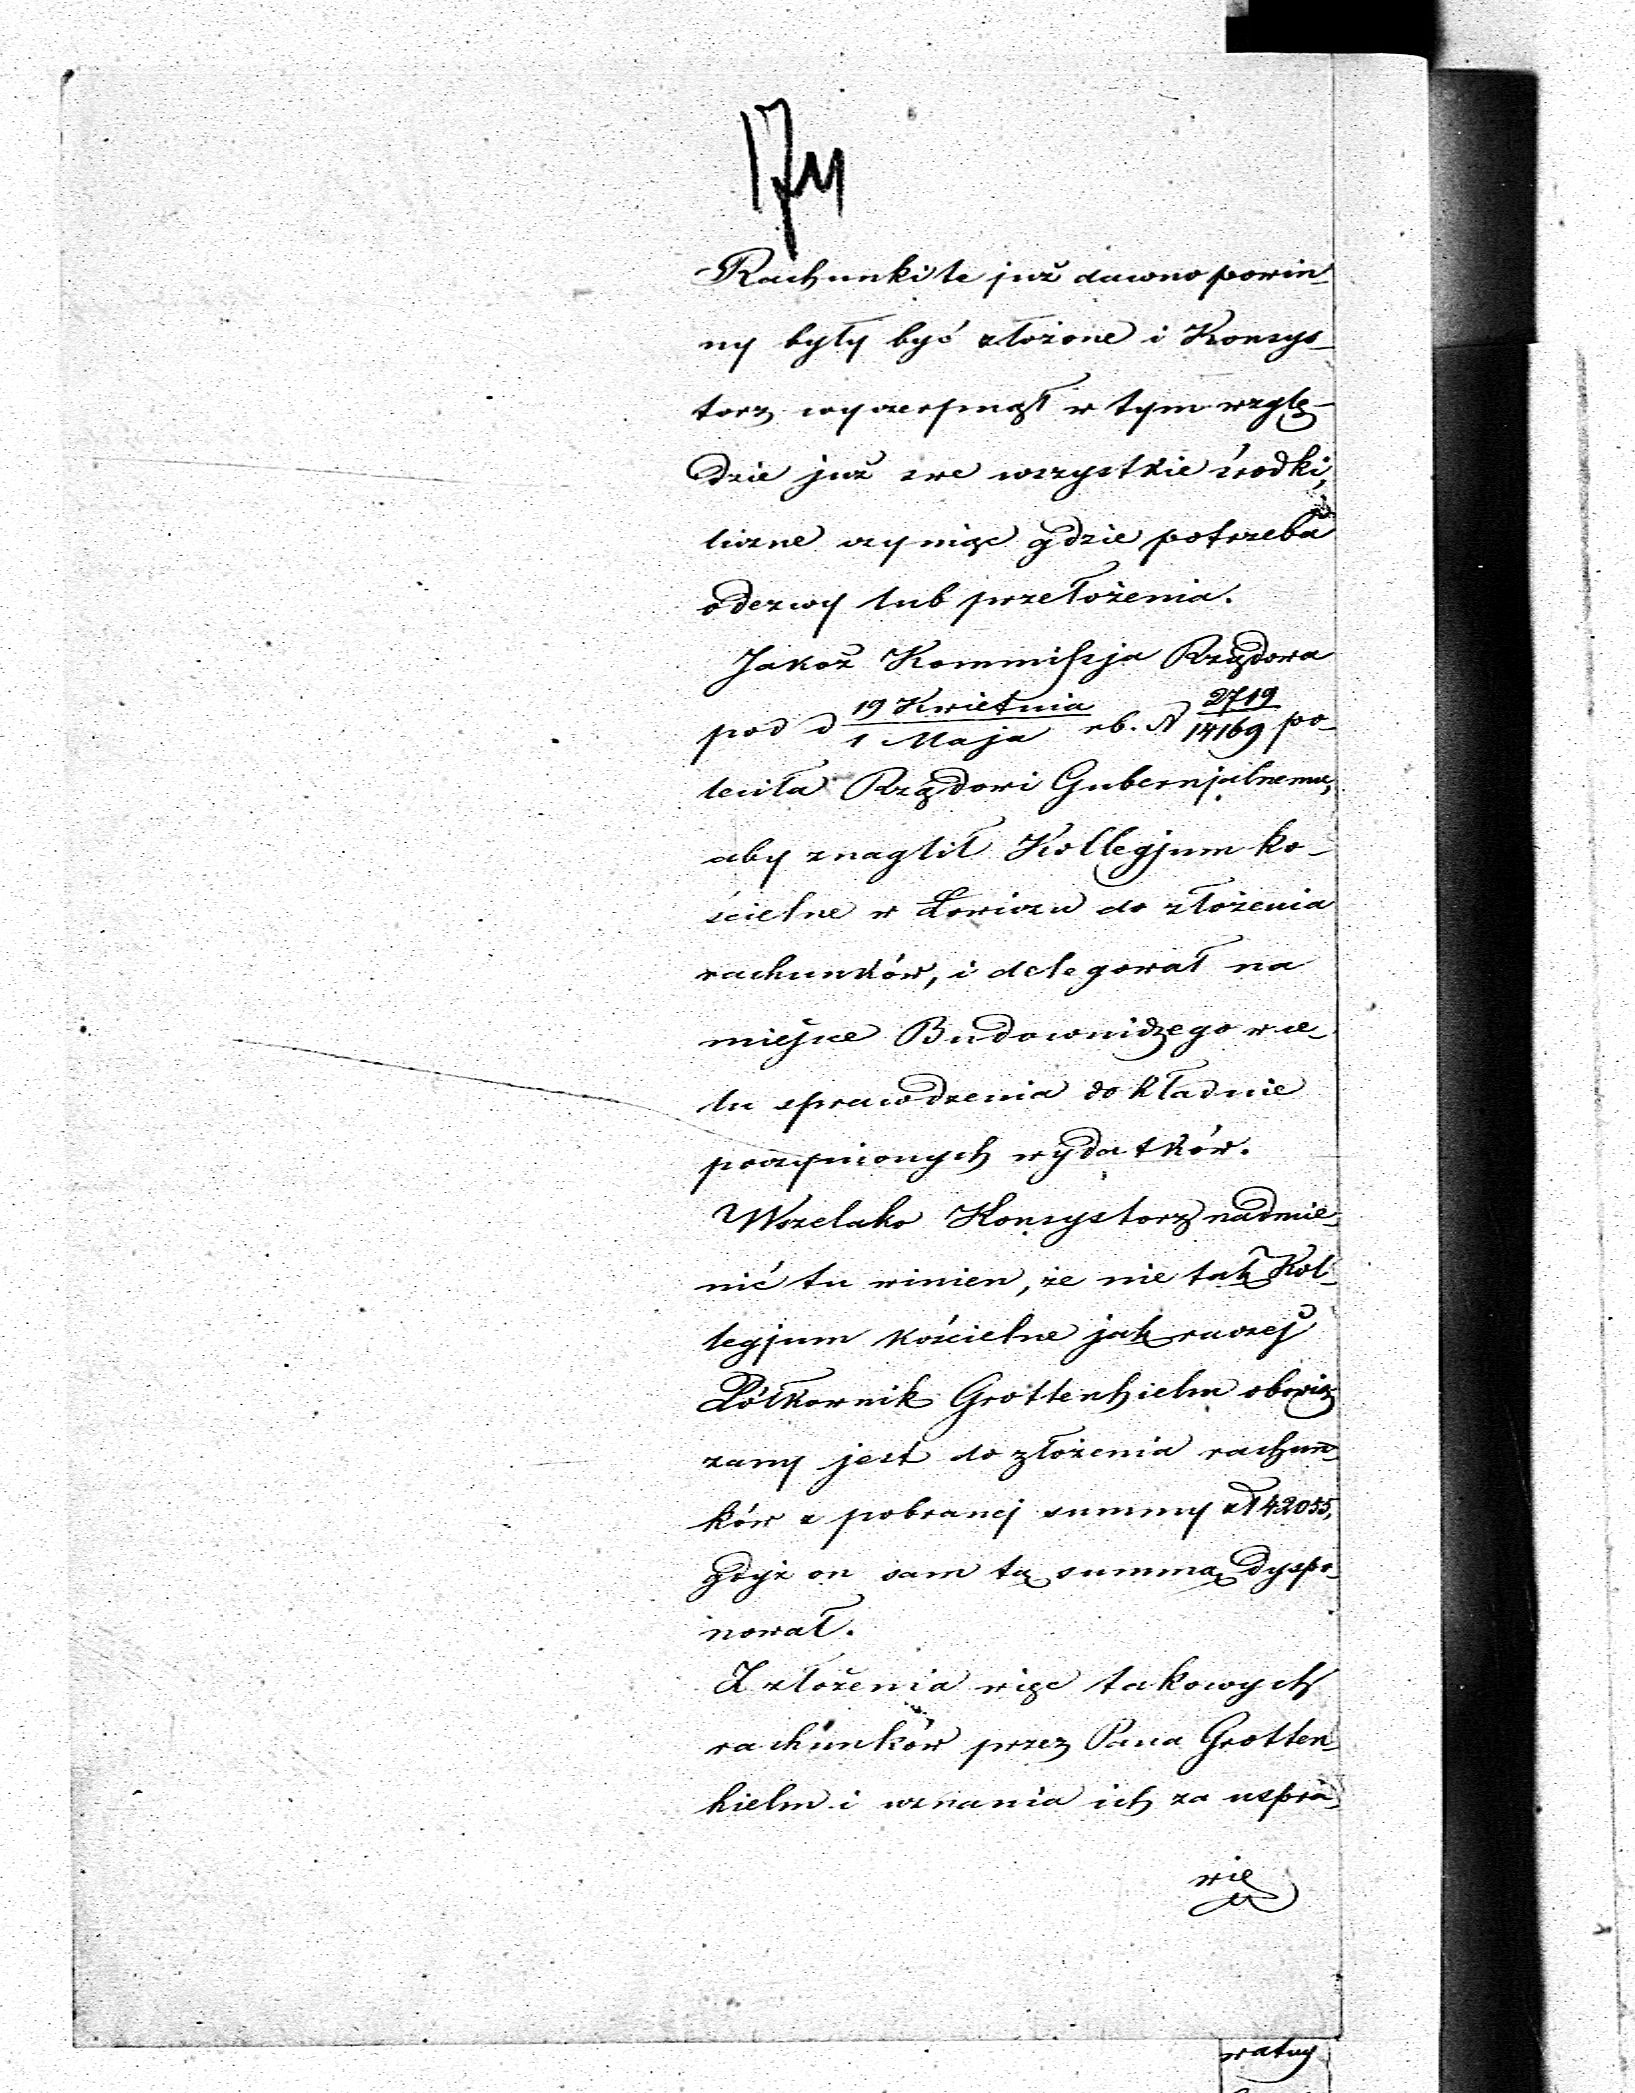 174
Rachunki te już dawno powin-
ny były być złożone i Konsys-
torz wyczerpnął w tym wzglę-
dzie już swe wszystkie środki,
liczne czyniąc gdzie potrzeba
odezwy lub przełożenia.
Jakoż Kommissja Rządowa
pod d 19 Kwietnia / 1 Maja rb. N 2719 / 14169 po-
leciła Rządowi Gubernjalnemu,
aby znaglił Kollegjum ko-
ścielne w Łowiczu do złożenia
rachunków, i delegował na
miejsce Budowniczego w ce-
lu sprawdzenia dokładnie
poczynionych wydatków.
Wszelako Konsystorz nadmie-
nić tu winien, że nie tak Kol-
legjum kościelne jak raczej
Półkownik Grottenhielm obowią
zany jest do złożenia rachun-
ków z pobranej summy zł 42055,
gdyż on sam tą summą dyspo-
nował.
Z złożenia więc takowych
rachunków przez Pana Grotten-
hielm i uznania ich za uspra-
wie
watny